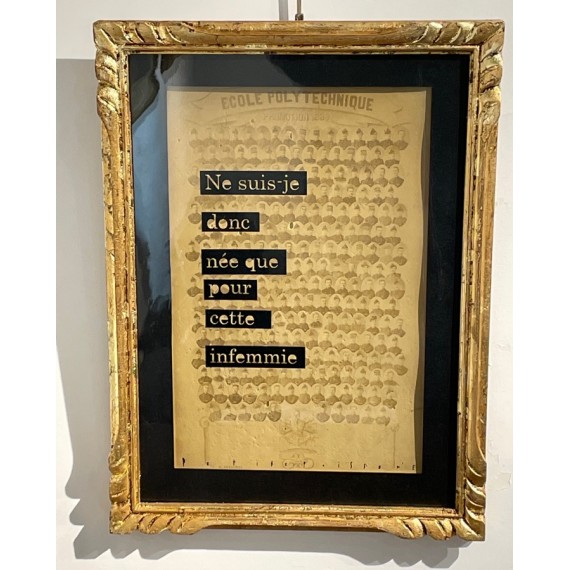 ECOLE POLYTECHNIQUE
Ne suis-je
donc
née que
pour
cette
infemmie